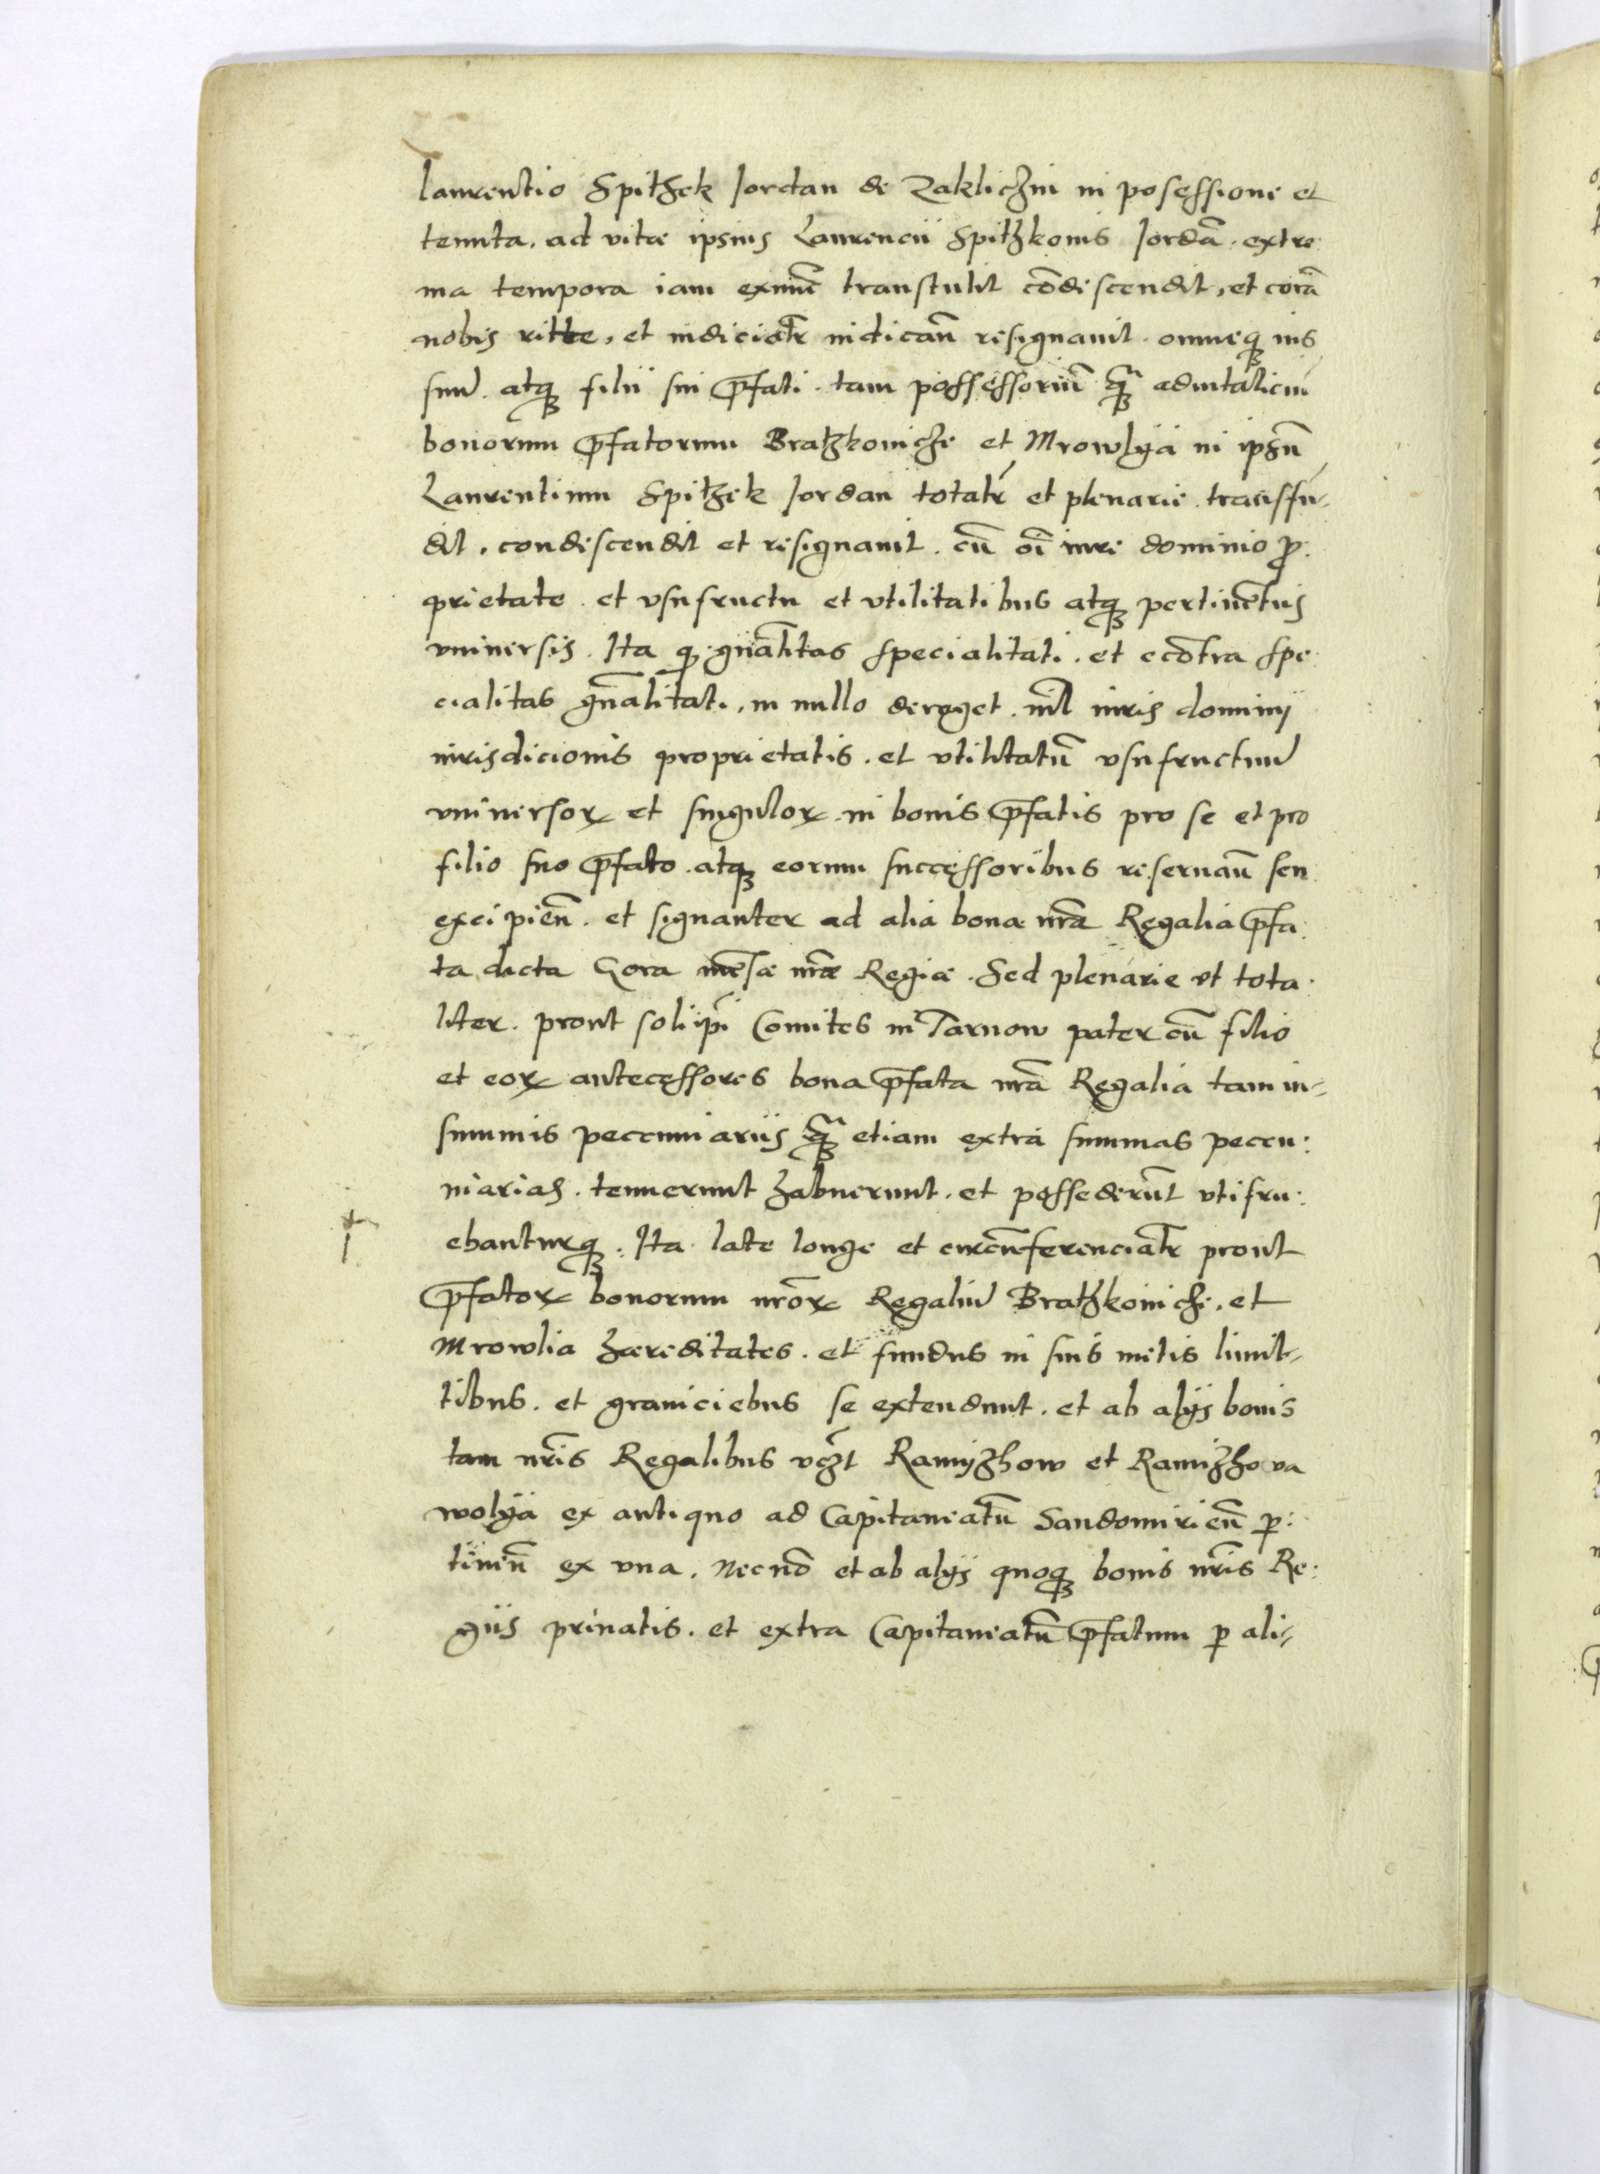 Laurentio Spitʒek Jordan de Zakliczin in posessione et
tenuta. ad vitæ ipsius Laurencii Spitʒkonis Jordā. extre
ma tempora iam exnūc transtulit cōdescendit, et corā
nobis ritte, et iudiciatr̄ iudicañ resignauit. omneqꝫ ius
suū. atqꝫ filii sui p̄fati. tam possessoriū q̄ꝫ aduitaliciū
bonorum p̄fatorum Bratʒkoniche et Mrowlÿa in ipsū
Laurentium Spitʒek Jordan totatr̄ et plenarie transfu-
dit. condescendit et resignauit. cū oi iure dominio ꝓ:
prietate. et vsufructu et vtilitatibus atqꝫ pertinētiis
vniuersis. Ita ꝙ gn̄alitas specialitati. et ecōtra spe:
cialitas gn̄alitati. in nullo deroget. nil iuris dominij
iurisdicionis proprietatis. et vtilitatū vsufructuū
vniuersoꝝ et singuloꝝ in bonis p̄fatis pro se et pro
filio suo p̄fato. atqꝫ eorum successoribus reseruañ seu
excipieñ. et signanter ad alia bona nr̄a Regalia p̄fa
ta dicta Gora mēsæ nr̄æ Regiæ. Sed plenarie vt tota
liter. prout soli ip̄i Comites in Tarnow pater cū filio
et eoꝝ antecessores bona p̄fata nr̄a Regalia tam in-
summis peccuniariis q̄ꝫ etiam extra summas peccu:
niarias. tenuerunt habuerunt. et possederūt vtifru:
ebanturqꝫ. Ita late longe et circūferenciatr̄ prout
p̄fatoꝝ bonorum nr̄oꝝ Regaliū Bratʒkoniche. et
Mrowlia hæreditates. et fundus in suis metis limit-
tibus. et graniciebus se extendunt. et ab alÿs bonis
tam nr̄is Regalibus vcʒt Ramÿʒhow et Ramiʒhova
wolÿa ex antiquo ad Capitaneatū Sandomirieñ ꝑ:
tineñ ex vna. Necnō et ab alÿs quoqꝫ bonis nr̄is Re:
giis priuatis. et extra Capitaneatū p̄fatum ꝑ ali-